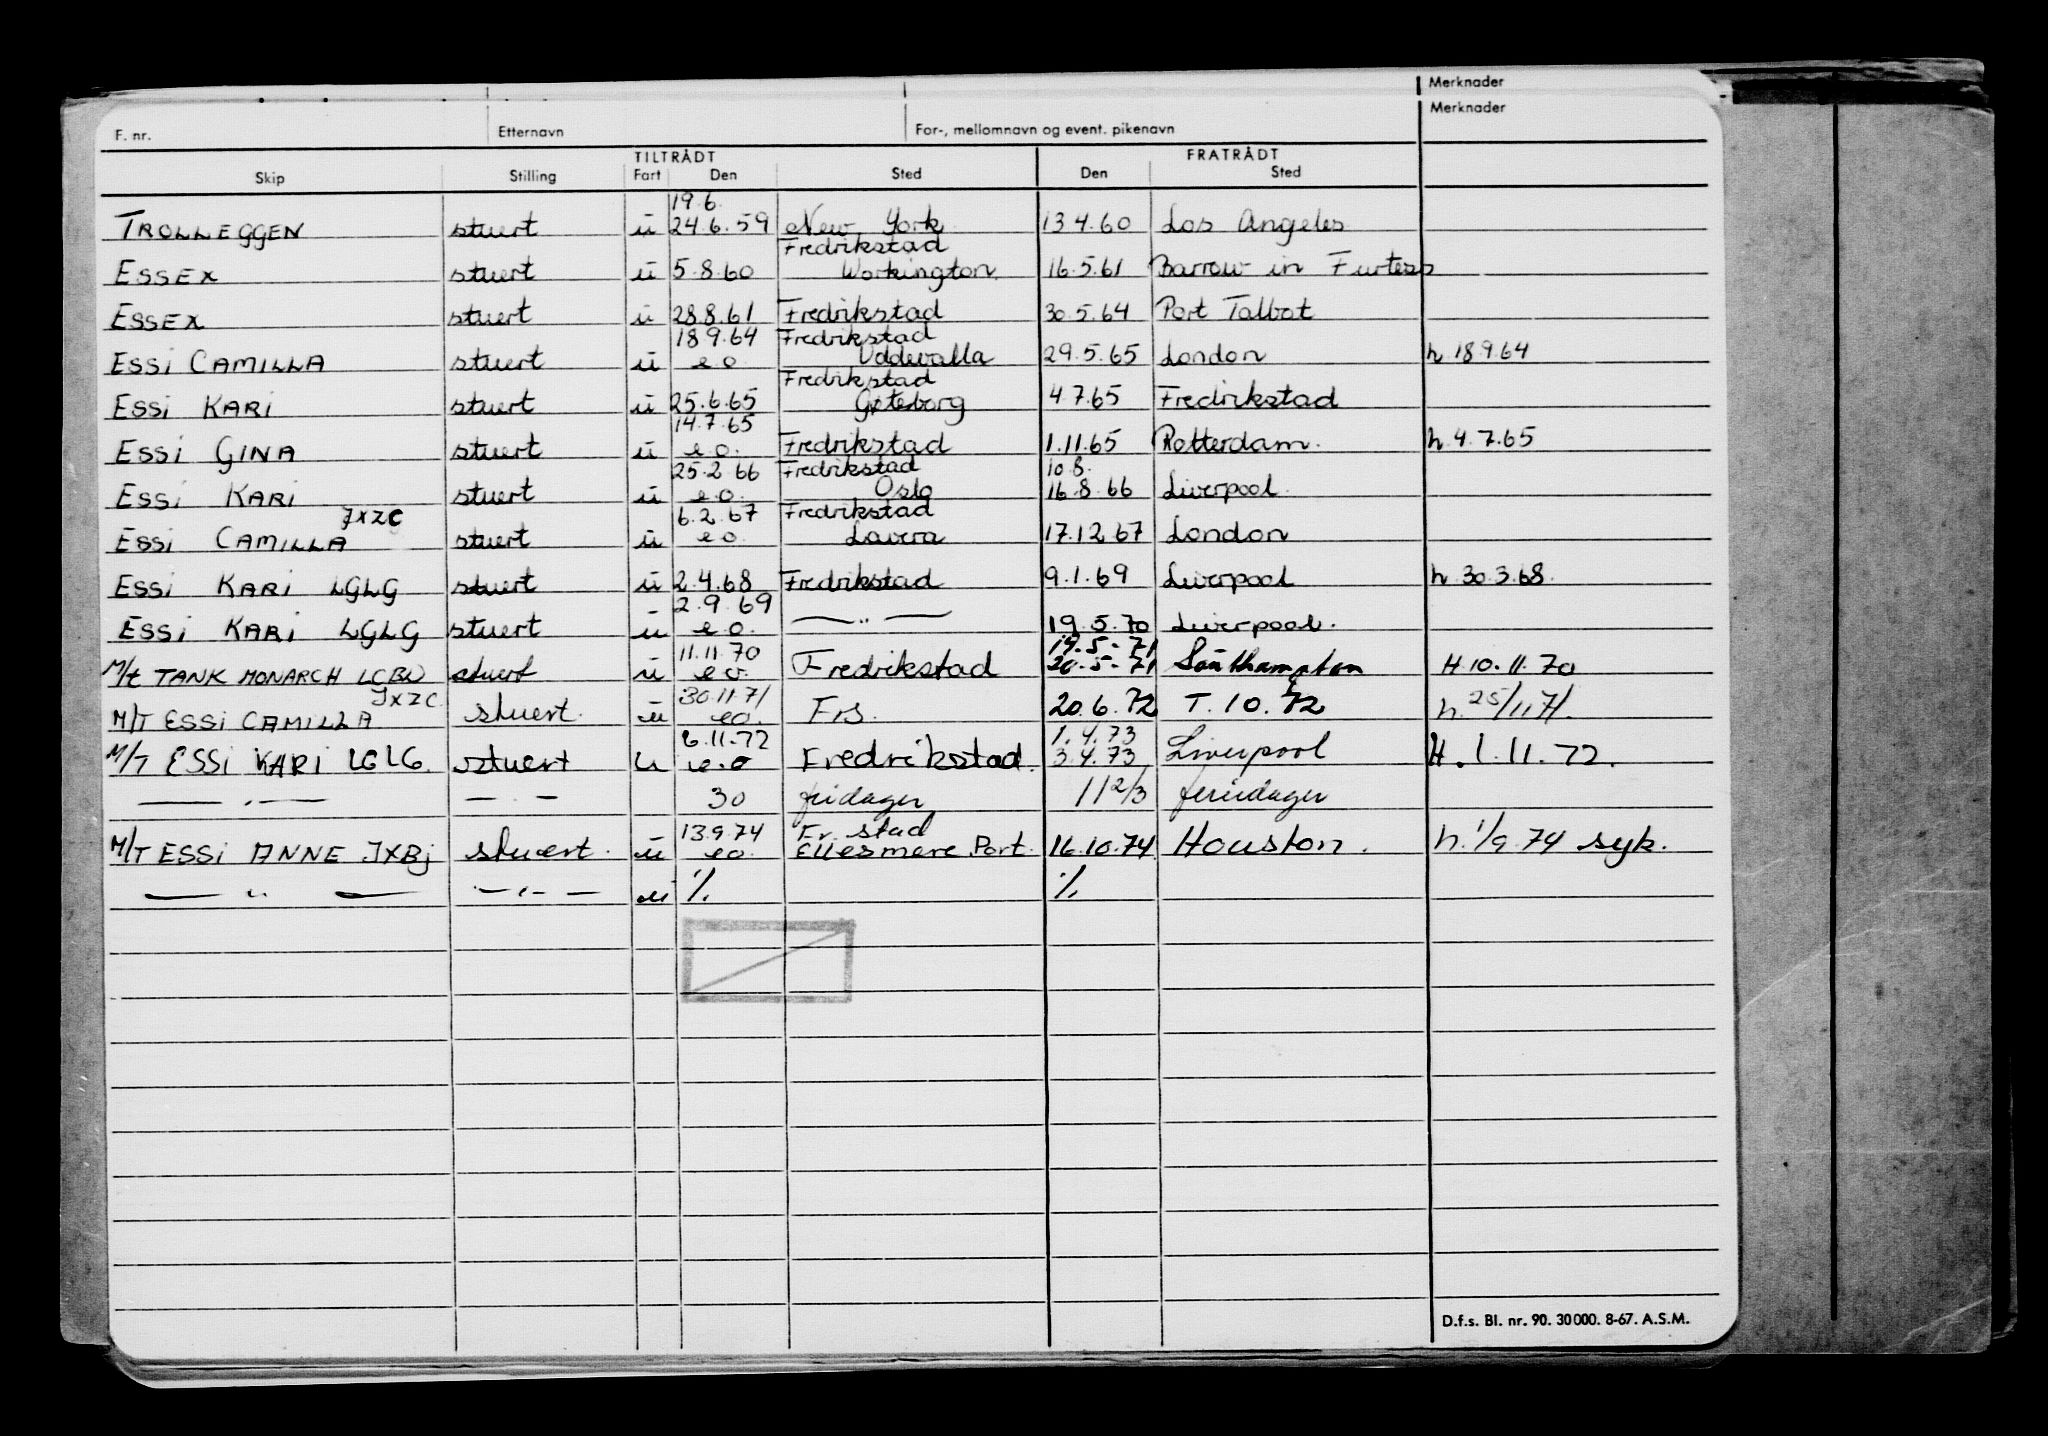 Merknader
Merknader
F. nr. Etternavn For-, mellomnavn og event. pikenavn
TILTRÅDT FRATRÅDT
Skip Stilling Fart Den Sted Den Sted
19.6.
TROLLEGGEN stuert u 24.6.59 New York 13.4.60 Los Angeles
Fredrikstad
ESSEX stuert u 5.8.60 Workington 16.5.61 Barrow in Furness
ESSEX stuert u 28.8.61 Fredrikstad 30.5.64 Port Talbot
18.9.64 Fredrikstad
ESSI CAMILLA stuert u e.o. Uddevalla 29.5.65 London h 18.9.64
Fredrikstad
ESSI KARI stuert u 25.6.65 Gøteborg 4.7.65 Fredrikstad
14.7.65
ESSI GINA stuert u e.o. Fredrikstad 1.11.65 Rotterdam. h.4.7.65
25.2.66 Fredrikstad 10.8.
ESSI KARI stuert u e.o. Oslo 16.8.66 Liverpool.
JXZC 6.2.67 Fredrikstad
ESSI CAMILLA stuert u e.o. Lavera 17.12.67 London
ESSI KARI LGLG stuert u 2.4.68 Fredrikstad 9.1.69 Liverpool h.30.3.68.
2.9.69
ESSI KARI LGLG stuert u e.o. — " — 19.5.70 Liverpool.
11.11.70 19.5-71
M/t TANK MONARCH stuert u e.o. Fredrikstad 20-5-71 Southampton H 10.11.70
JXZC 30.11.71
M/T ESSI CAMILLA stuert. u e.o. Frs. 20.6.72 T.10.72 h.25/11 71.
6.11.72 1.4.73
M/T ESSI KARI LGLG. stuert u e.o Fredrikstad. 3.4.73 Liverpool H.1.11.72.
— " — — " — 30 fridager 11 2/3 feriedager
13.9.74 Fr.stad
M/T ESSI ANNE JXBJ stuert. u e.o. Ellesmere Port. 16.10.74 Houston. h.1/9.74 syk.
— " — — " — u ./. ./.
D.f.s. Bl. nr. 90. 30 000. 8-67. A.S.M.